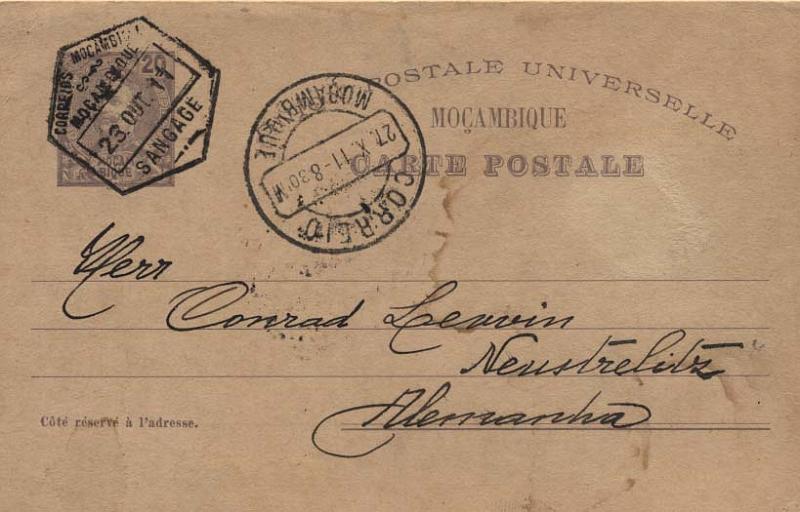 CORREIOS MOÇAMBIQUE
MOÇAMBIQUE
23 OUT. 11
SANGAGE
20
MOÇAMBIQUE
27. X. 11 - 8.30
CORREIO
POSTALE UNIVERSELLE
MOÇAMBIQUE
CARTE POSTALE
Herr
Conrad Loewin
Neustrelitz
Alemanha
Côté réservé à l'adresse.